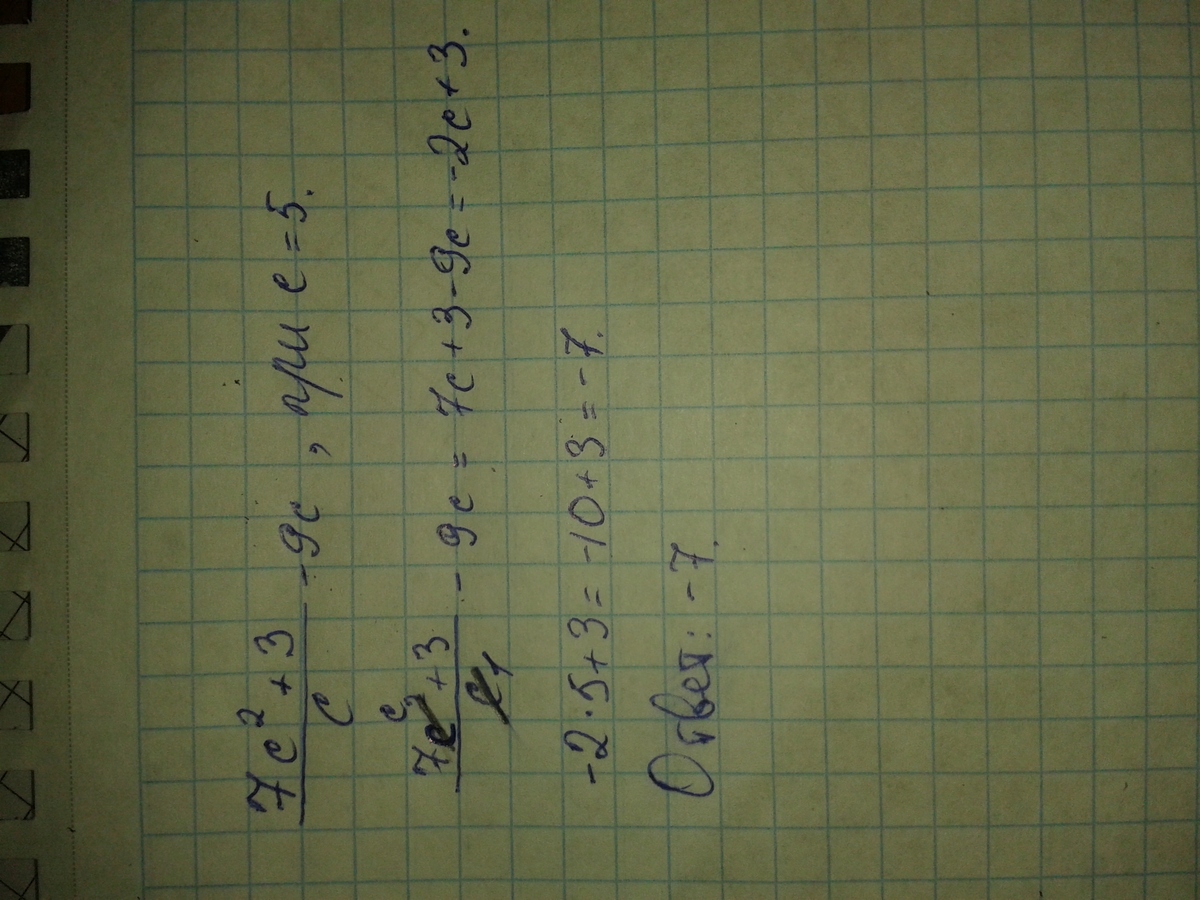 7c²+3/c - 9c, при c=5.
7c²+3/c - 9c = 7c+3-9c=-2c+3.
-2·5+3=-10+3=-7.
Ответ: -7.